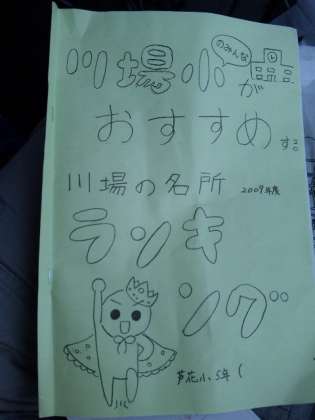 川場小
のみんな
が
おすすめする
川場の名所 2009年度
ランキ
ング
芦花小、5年(